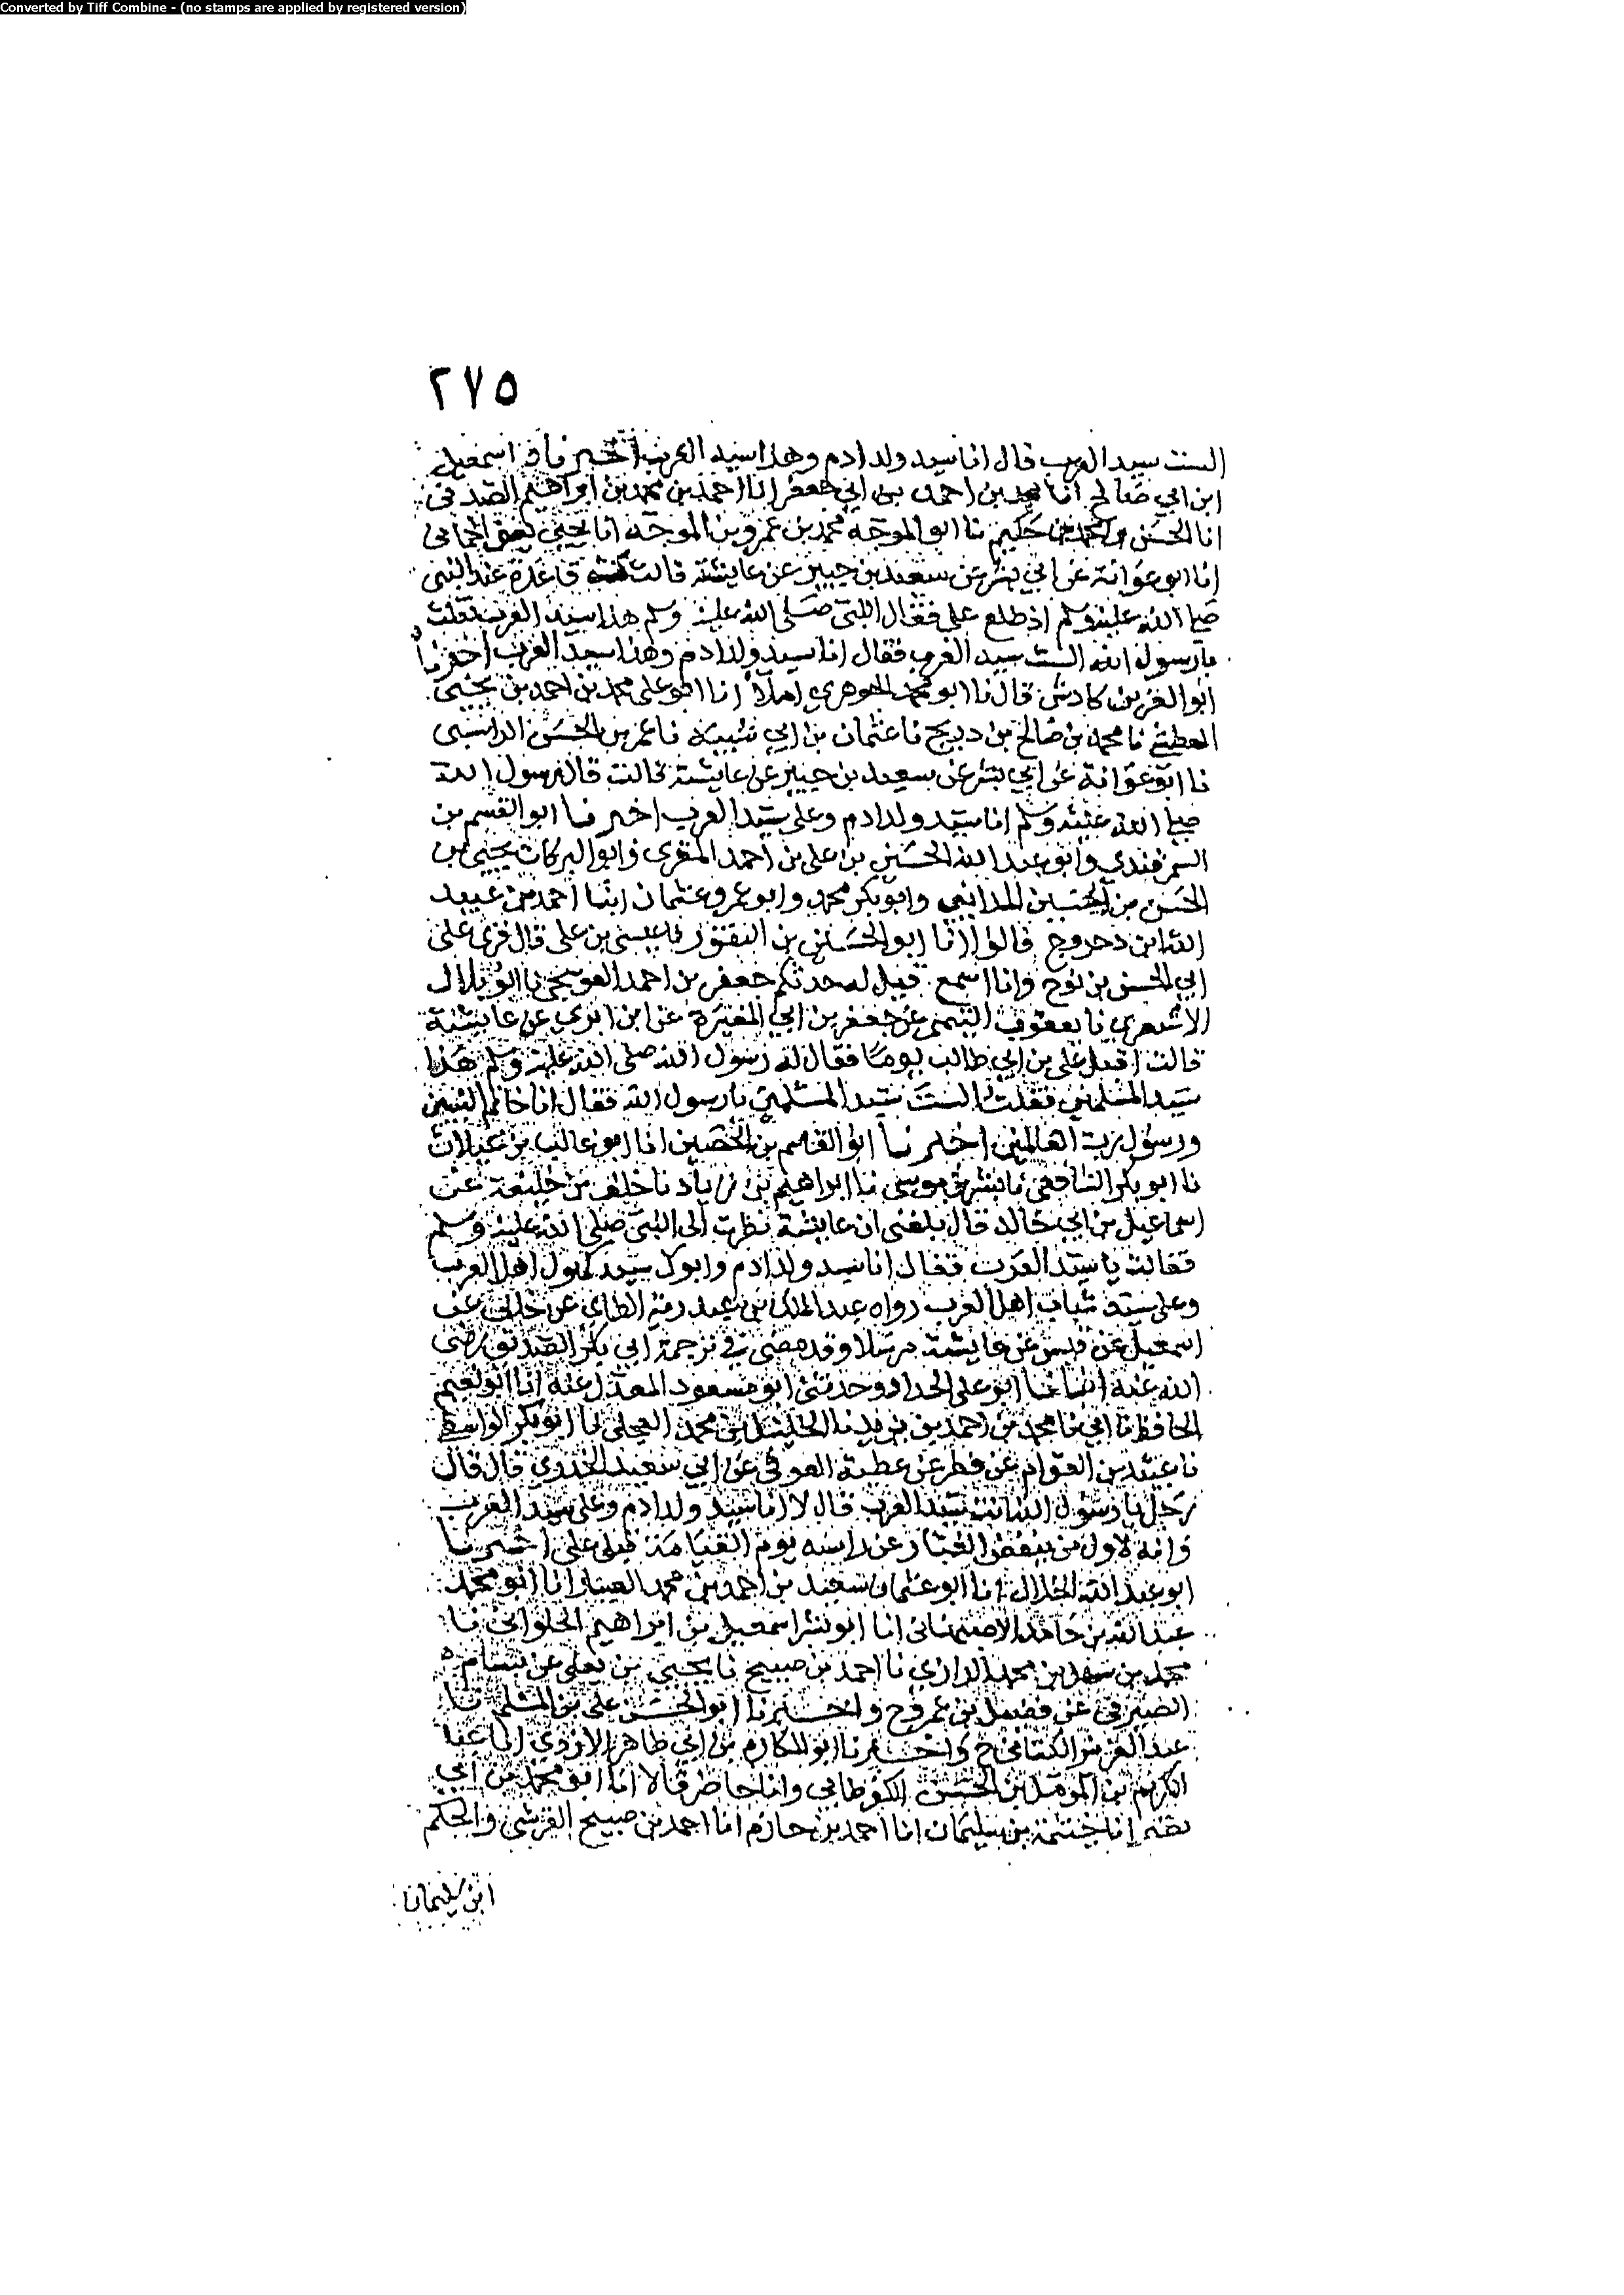 Converted by Tiff Combine - (no stamps are applied by registered version)
٢٧٥
الست سيد العرب قال انا سيد ولد ادم وهذا سيد العرب اخبرنا اسمعيل
ابن ابي صالح انا بن احمد بن ابي جعفر انا احمد بن محمد بن ابراهيم الصدفى
انا الحسن بن محمد بن حكيم نا ابو الموجه محمد بن عمرو بن الموجه انا يحيى الحمانى
انا ابو عوانة عن ابي بشر عن سعيد بن جبير عن عايشة قالت كنت قاعدة عند النبى
صلى الله عليه وسلم اذ طلع على فقال النبى صلى الله عليه وسلم هذا سيد العرب فقلت
يا رسول الله الست سيد العرب فقال انا سيد ولد ادم وهذا سيد العرب اخبرنا
ابو العز بن كادش قال نا ابو محمد الجوهري املاء انا ابو على محمد بن احمد بن يحيى
العطشى نا محمد بن صالح بن دريج نا عثمان بن ابي شيبة نا عمر بن الحسن الراسبى
نا ابو عوانة عن ابي بشر عن سعيد بن جبير عن عايشة قالت قال رسول الله
صلى الله عليه وسلم انا سيد ولد ادم وعلى سيد العرب اخبرنا ابو القسم بن
السمرقندي وابو عبد الله الحسين بن على بن احمد المقرى وابو البركات يحيى بن
الحسن بن الحسين المداينى وابو بكر محمد وابو عمرو عثمان ابنا احمد بن عبيد
الله ابن دحروج قالوا انا ابو الحسين بن النقور نا عيسى بن على قال قرى على
ابي الحسن بن نوح وانا اسمع قيل له حدثكم جعفر بن احمد العوسجى نا ابو بلال
الاشعري نا يعقوب التيمى عن جعفر بن ابي المغيرة عن ابن ابزى عن عايشة
قالت اقبل على بن ابي طالب يوما فقال له رسول الله صلى الله عليه وسلم هذا
سيد المسلمين فقلت الست سيد المسلمين يا رسول الله فقال انا خاتم النبيين
ورسول رب العالمين اخبرنا ابو القاسم بن الحصين انا ابو غالب بن غيلان
نا ابو بكر الشافعى نا بشر بن موسى نا ابراهيم بن زياد نا خلف بن خليفة عن
اسماعيل بن ابي خالد قال بلغنى ان عايشة نظرت الى النبى صلى الله عليه وسلم
فقالت يا سيد العرب فقال انا سيد ولد ادم وابوك سيد كهول اهل العرب
وعلى سيد شباب اهل العرب رواه عبد الملك بن عبد ربه الطاى عن خلف عن
اسمعيل عن قيس عن عايشة مرسلا وقد مضى في ترجمة ابي بكر الصديق رضى
الله عنه ابو على الحداد وحدثنى ابو مسعود المعدل عنه انا ابو نعيم
الحافظ نا ابي نا محمد بن احمد بن يزيد نا الخليل بن محمد العجلى نا ابو بكر الواسطى
نا عبيد بن العوام عن فطر عن عطية العوفى عن ابي سعيد الخدري قال قال
رجل يا رسول الله انت سيد العرب قال لا انا سيد ولد ادم وعلى سيد العرب
وانه لاول من ينفض الغبار عن راسه يوم القيامة قبلى على اخبرنا
ابو عبد الله الخلال انا ابو عثمان سعيد بن احمد بن محمد العيار انا ابو محمد
عبد الله بن حامد الاصبهانى انا ابو بشر اسمعيل بن ابراهيم الحلوانى نا
محمد بن سهل بن محمد الرازي نا احمد بن صبيح نا يحيى بن يعلى عن بسام
الصيرفى عن فضيل بن عمرو ح واخبرنا ابو الحسن على بن المسلم نا
عبد العزيز الكتانى ح واخبرنا ابو المكارم بن ابي طاهر الازدي انا عبد
الكريم بن المومل بن الحسن الكفرطابى وانا حاضر قالا انا ابو محمد بن ابي
نصر انا خيثمة بن سليمان انا احمد بن حازم انا احمد بن صبيح القرشى والحكم
ابن سليمان